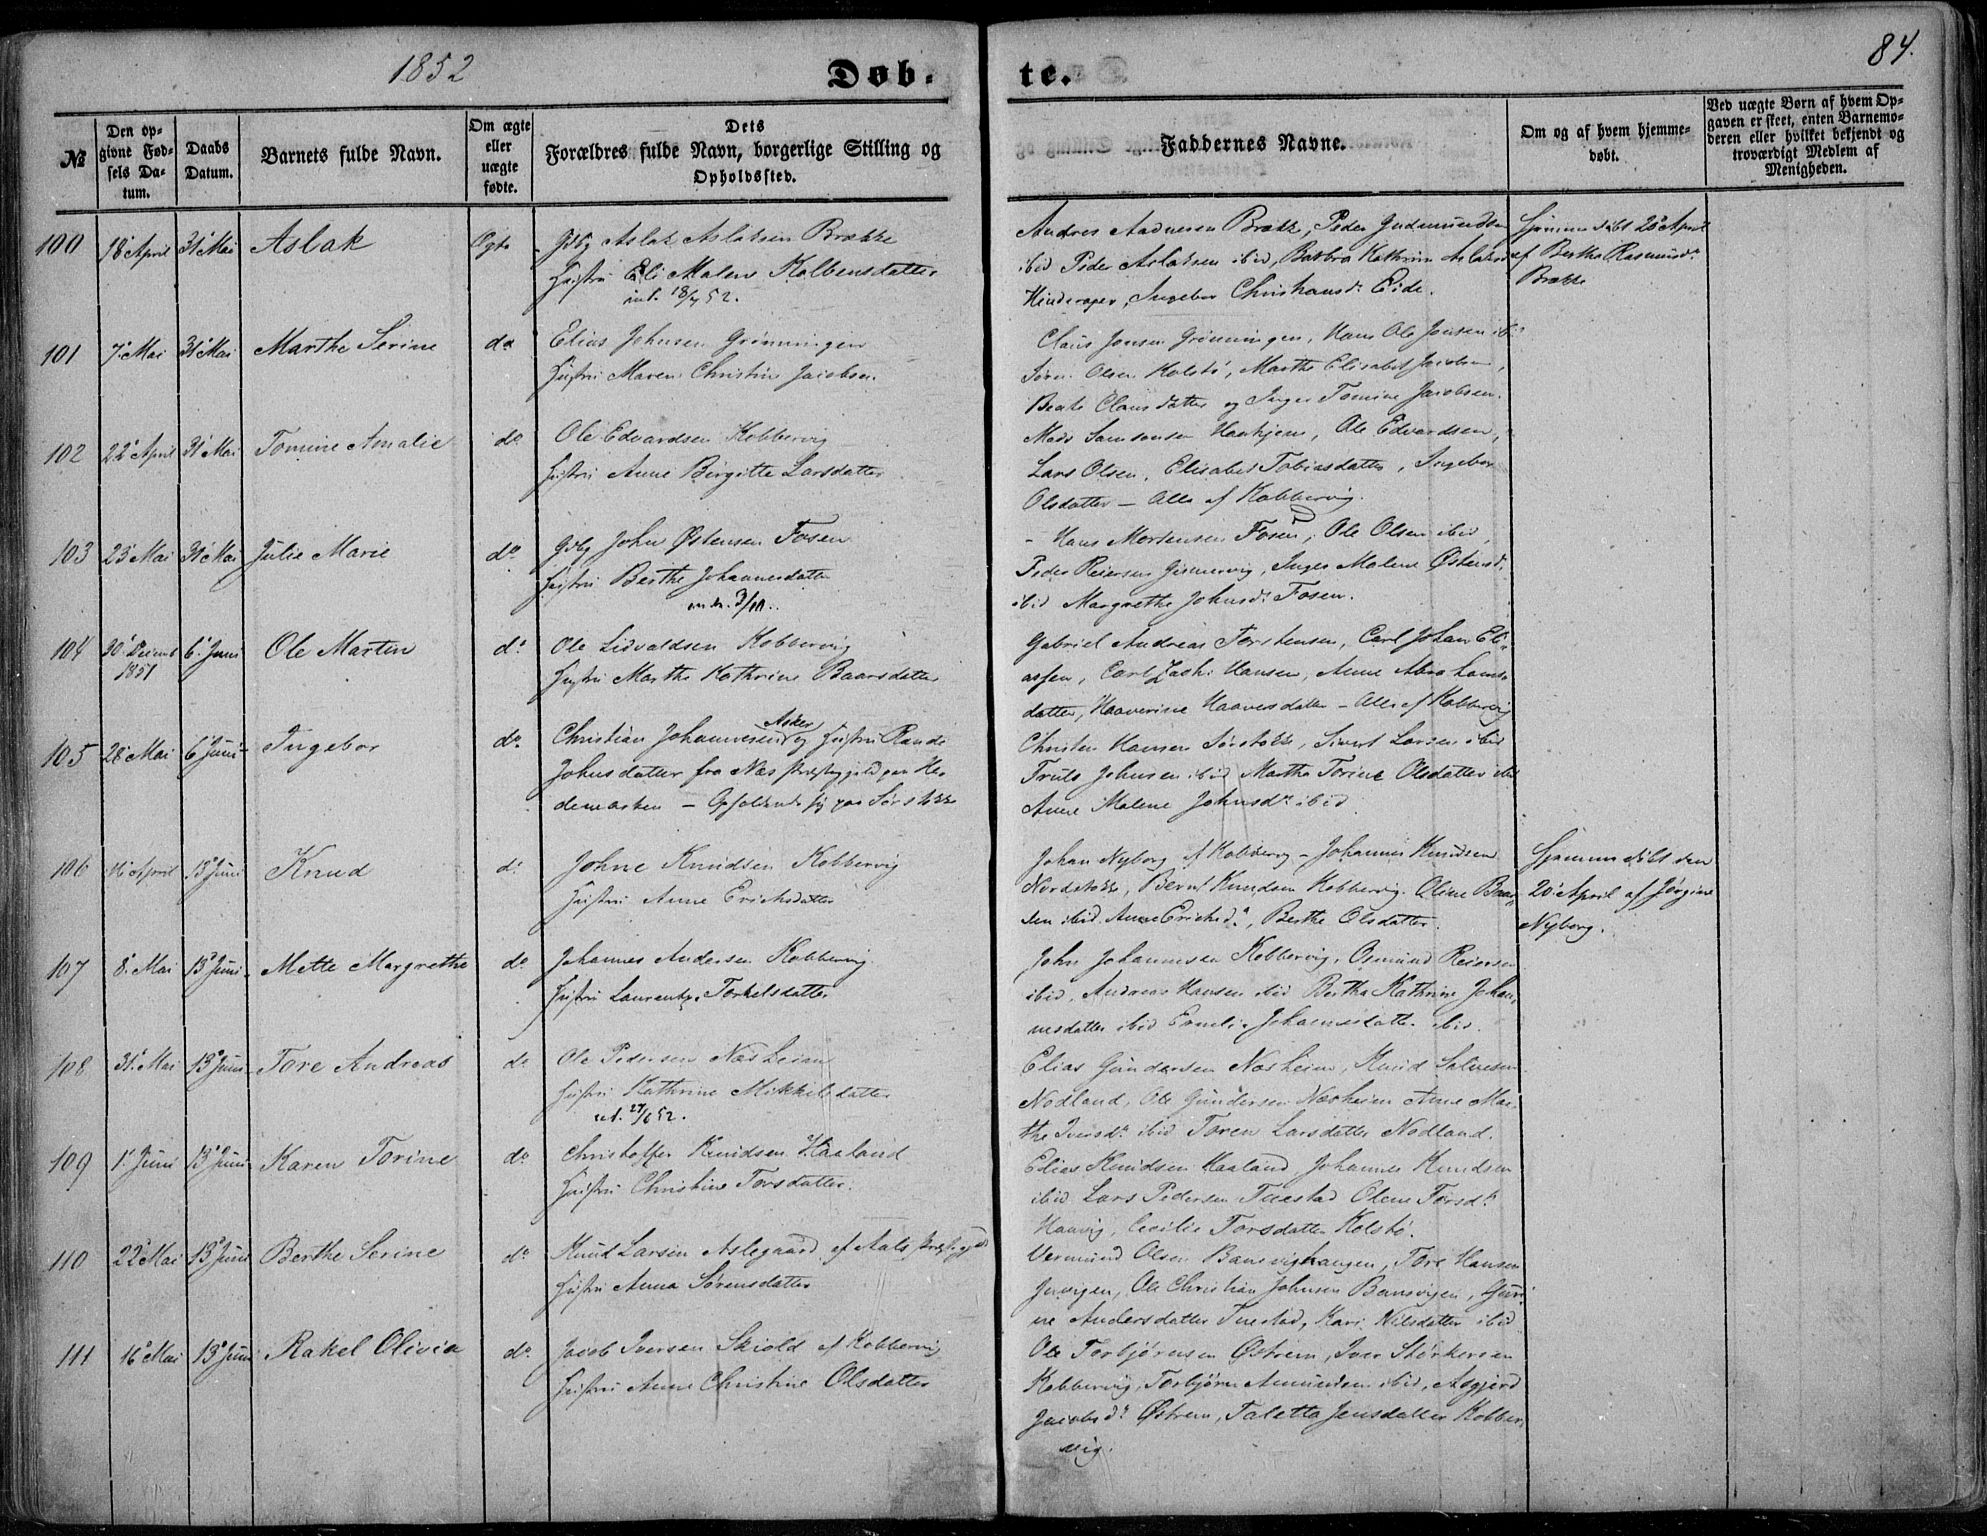 1852
Døb-
te.
84.
№
Den op-
givne Fød-
sels Da-
tum.
Daabs
Datum.
Barnets fulde Navn.
Om ægte
eller
uægte
fødte.
Dets
Forældres fulde Navn, borgerlige Stilling og
Opholdssted.
Faddernes Navne.
Om og af hvem hjemme-
døbt.
Ved uægte Børn af hvem Op-
gaven er skeet, enten Barnemo-
deren eller hvilket bekjendt og
troværdigt Medlem af
Menigheden.
100 18 April 31 Mai Aslak Ægte Aslak Aslaksen Brække
Hustru Eli Malene Kolbensdatter
18/4 52.
Andres Aadnesen Brække, Peder Gudmundsen
ibid Peder Aslaksen ibid, Barbra Kathrine Aslaksd
Hinderager, Ingebor Christiansdr Eide.
Hjemmedøbt 20 April
af Berthe Rasmusdr
Brække
101 7 Mai 31 Mai Marthe Serine do Elias Johnsen Grønningen
Hustru Maren Christine Jacobsen.
Claus Jonsen Grønningen, Hans Ole Jonsen ibi
Olsen Kolstø, Marthe Elisabet Jacobsen,
Beate Clausdatter og Inger Tomine Jacobsen.
102 22 April 31 Mai Tomine Amalie do Ole Edvardsen Kobbervig
Hustru Anne Birgitte Larsdatter
Mads Samsonsen Ole Edvardsen,
Lars Olsen, Elisabet Tobiasdatter, Ingebor
Olsdatter — Alle af Kobbervig.
103 23 Mai 31 Mai Julie Marie do John Østensen Fosen
Hustru Berthe Johannesdatter
3/10.
Hans Mortensen Fosen, Ole Olsen ibid,
Peder Reiersen Gismervig, Inger Malene Østensd.
ibid Margrethe Johnsdr Fosen.
104 30 Decemb 6 Juni Ole Martin do Ole Sidvaldsen Kobbervig
1851
Hustru Marthe Kathrine Baarsdatter
Gabriel Andreas Torstensen, Carl Johan Eli-
assen, Carl Zach: Hansen, Anne Abrahams-
datter, Haaverine Haaversdatter — Alle af Kobbervig
105 28 Mai 6 Juni Ingebor do Christian Johannesen Asker og Hustru Rande
Johnsdatter fra Næs Præstegjeld paa He-
demarken — Opholdende sig paa Sørstokke
Christen Hansen Sørstokke, Sivert Larsen ibid
Truls Johnsen ibid Martha Torine Olsdatter ibi
Anne Malene Johnsdr ibid
106 16 April 13 Juni Knud do Johne Knudsen Kobbervig
Hustru Anne Erichsdatter
Johan Nyborg af Kobbervig — Johannes Knudsen
Nordstokke, Bernt Knudsen Kobbervig. Oline
ibid. Anne Erichsdr, Berthe Olsdatter.
Hjemmedøbt den
20 April af Jørgine
Nyborg.
107 8 Mai 13 Juni Mette Margrethe do Johannes Andersen Kobbervig
Hustru Laurentze Torkelsdatter
John Johannesen Kobbervig, Osmund Reiersen
ibid, Andreas Hansen ibid Bertha Kathrine Johan-
nesdatter ibid Emelie Johannesdatter ibid.
108 31 Mai 13 Juni Tore Andreas do Ole Pedersen Næsheim
Hustru Kathrine Mikkelsdatter
27/6 52.
Elias Gundersen Næsheim, Knud Salvesen
Nodland, Ole Gundersen Næsheim Anne Mar-
the Iversdr ibid Toren Larsdatter Nodland.
109 1 Juni 13 Juni Karen Torine do Christoffer Knudsen Haaland
Hustru Christine Torsdatter.
Elias Knudsen Haaland, Johannes Knudsen
ibid Lars Pedersen Tuestad Olene Torsdr
Haavig, Cecilie Torsdatter Kolstø.
110 22 Mai 13 Juni Berthe Serine do Knud Larsen Aslegaard af Aals Præstegjeld
Hustru Anna Sørensdatter
Vermund Olsen Bansvighaugen, Tore Hansen
Ole Christian Johnsen Bansvigen,
Andersdatter Tuestad, Kari Nilsdatter ibid
111 16 Mai 13 Juni Rakel Olivia do Jacob Iversen Skiold af Kobbervig
Hustru Anne Christine Olsdatter
Ole Torbjørnsen Østrem, Iver Størkersen
Kobbervig, Torbjørn Amundsen ibid, Asgjerd
Jacobsdr Østrem, Taletta Jensdatter Kobber-
vig.